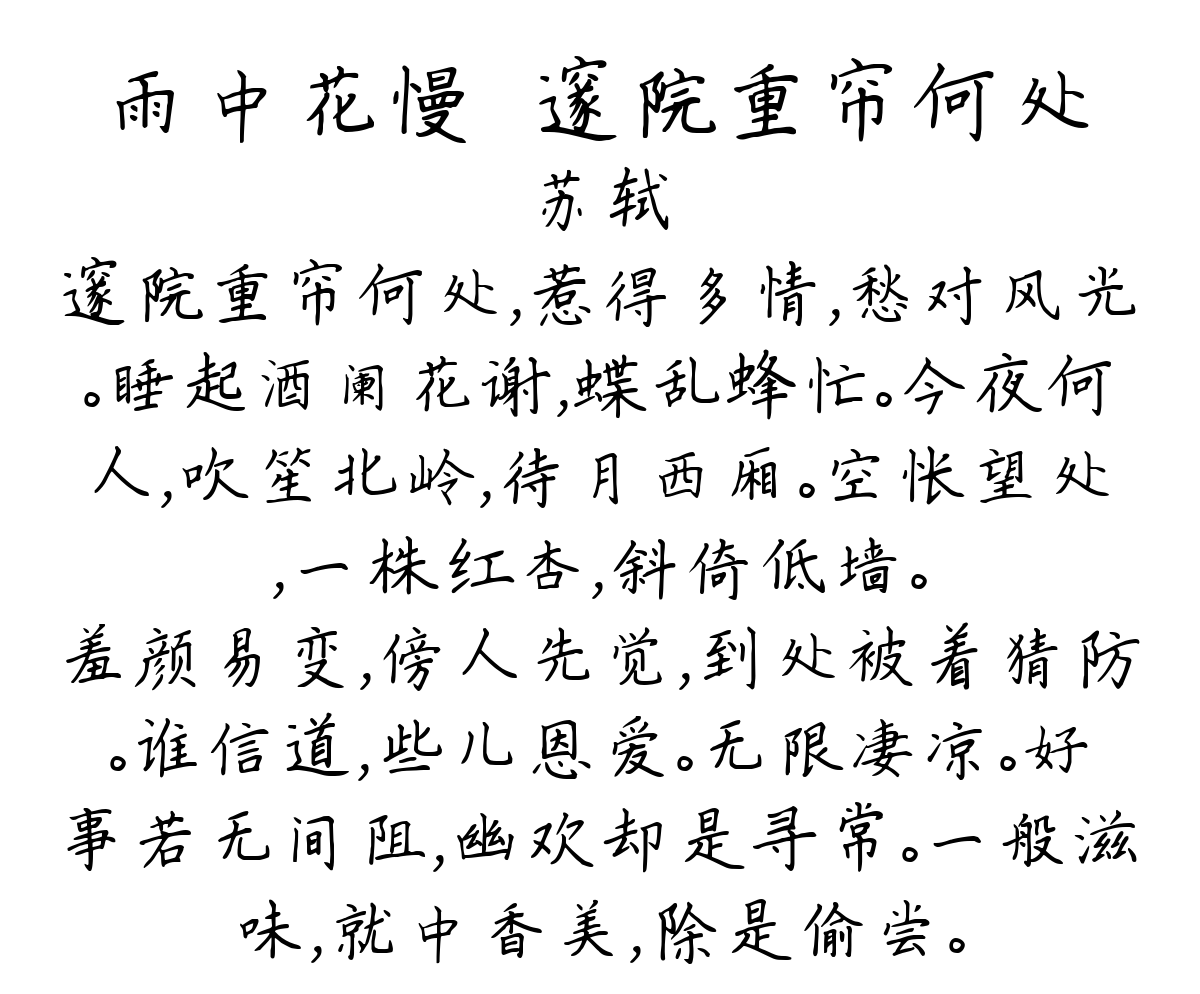 雨中花慢 邃院重帘何处
苏轼
邃院重帘何处,惹得多情,愁对风光
。睡起酒阑花谢,蝶乱蜂忙。今夜何
人,吹笙北岭,待月西厢。空怅望处
,一株红杏,斜倚低墙。
羞颜易变,傍人先觉,到处被着猜防
。谁信道,些儿恩爱。无限凄凉。好
事若无间阻,幽欢却是寻常。一般滋
味,就中香美,除是偷尝。